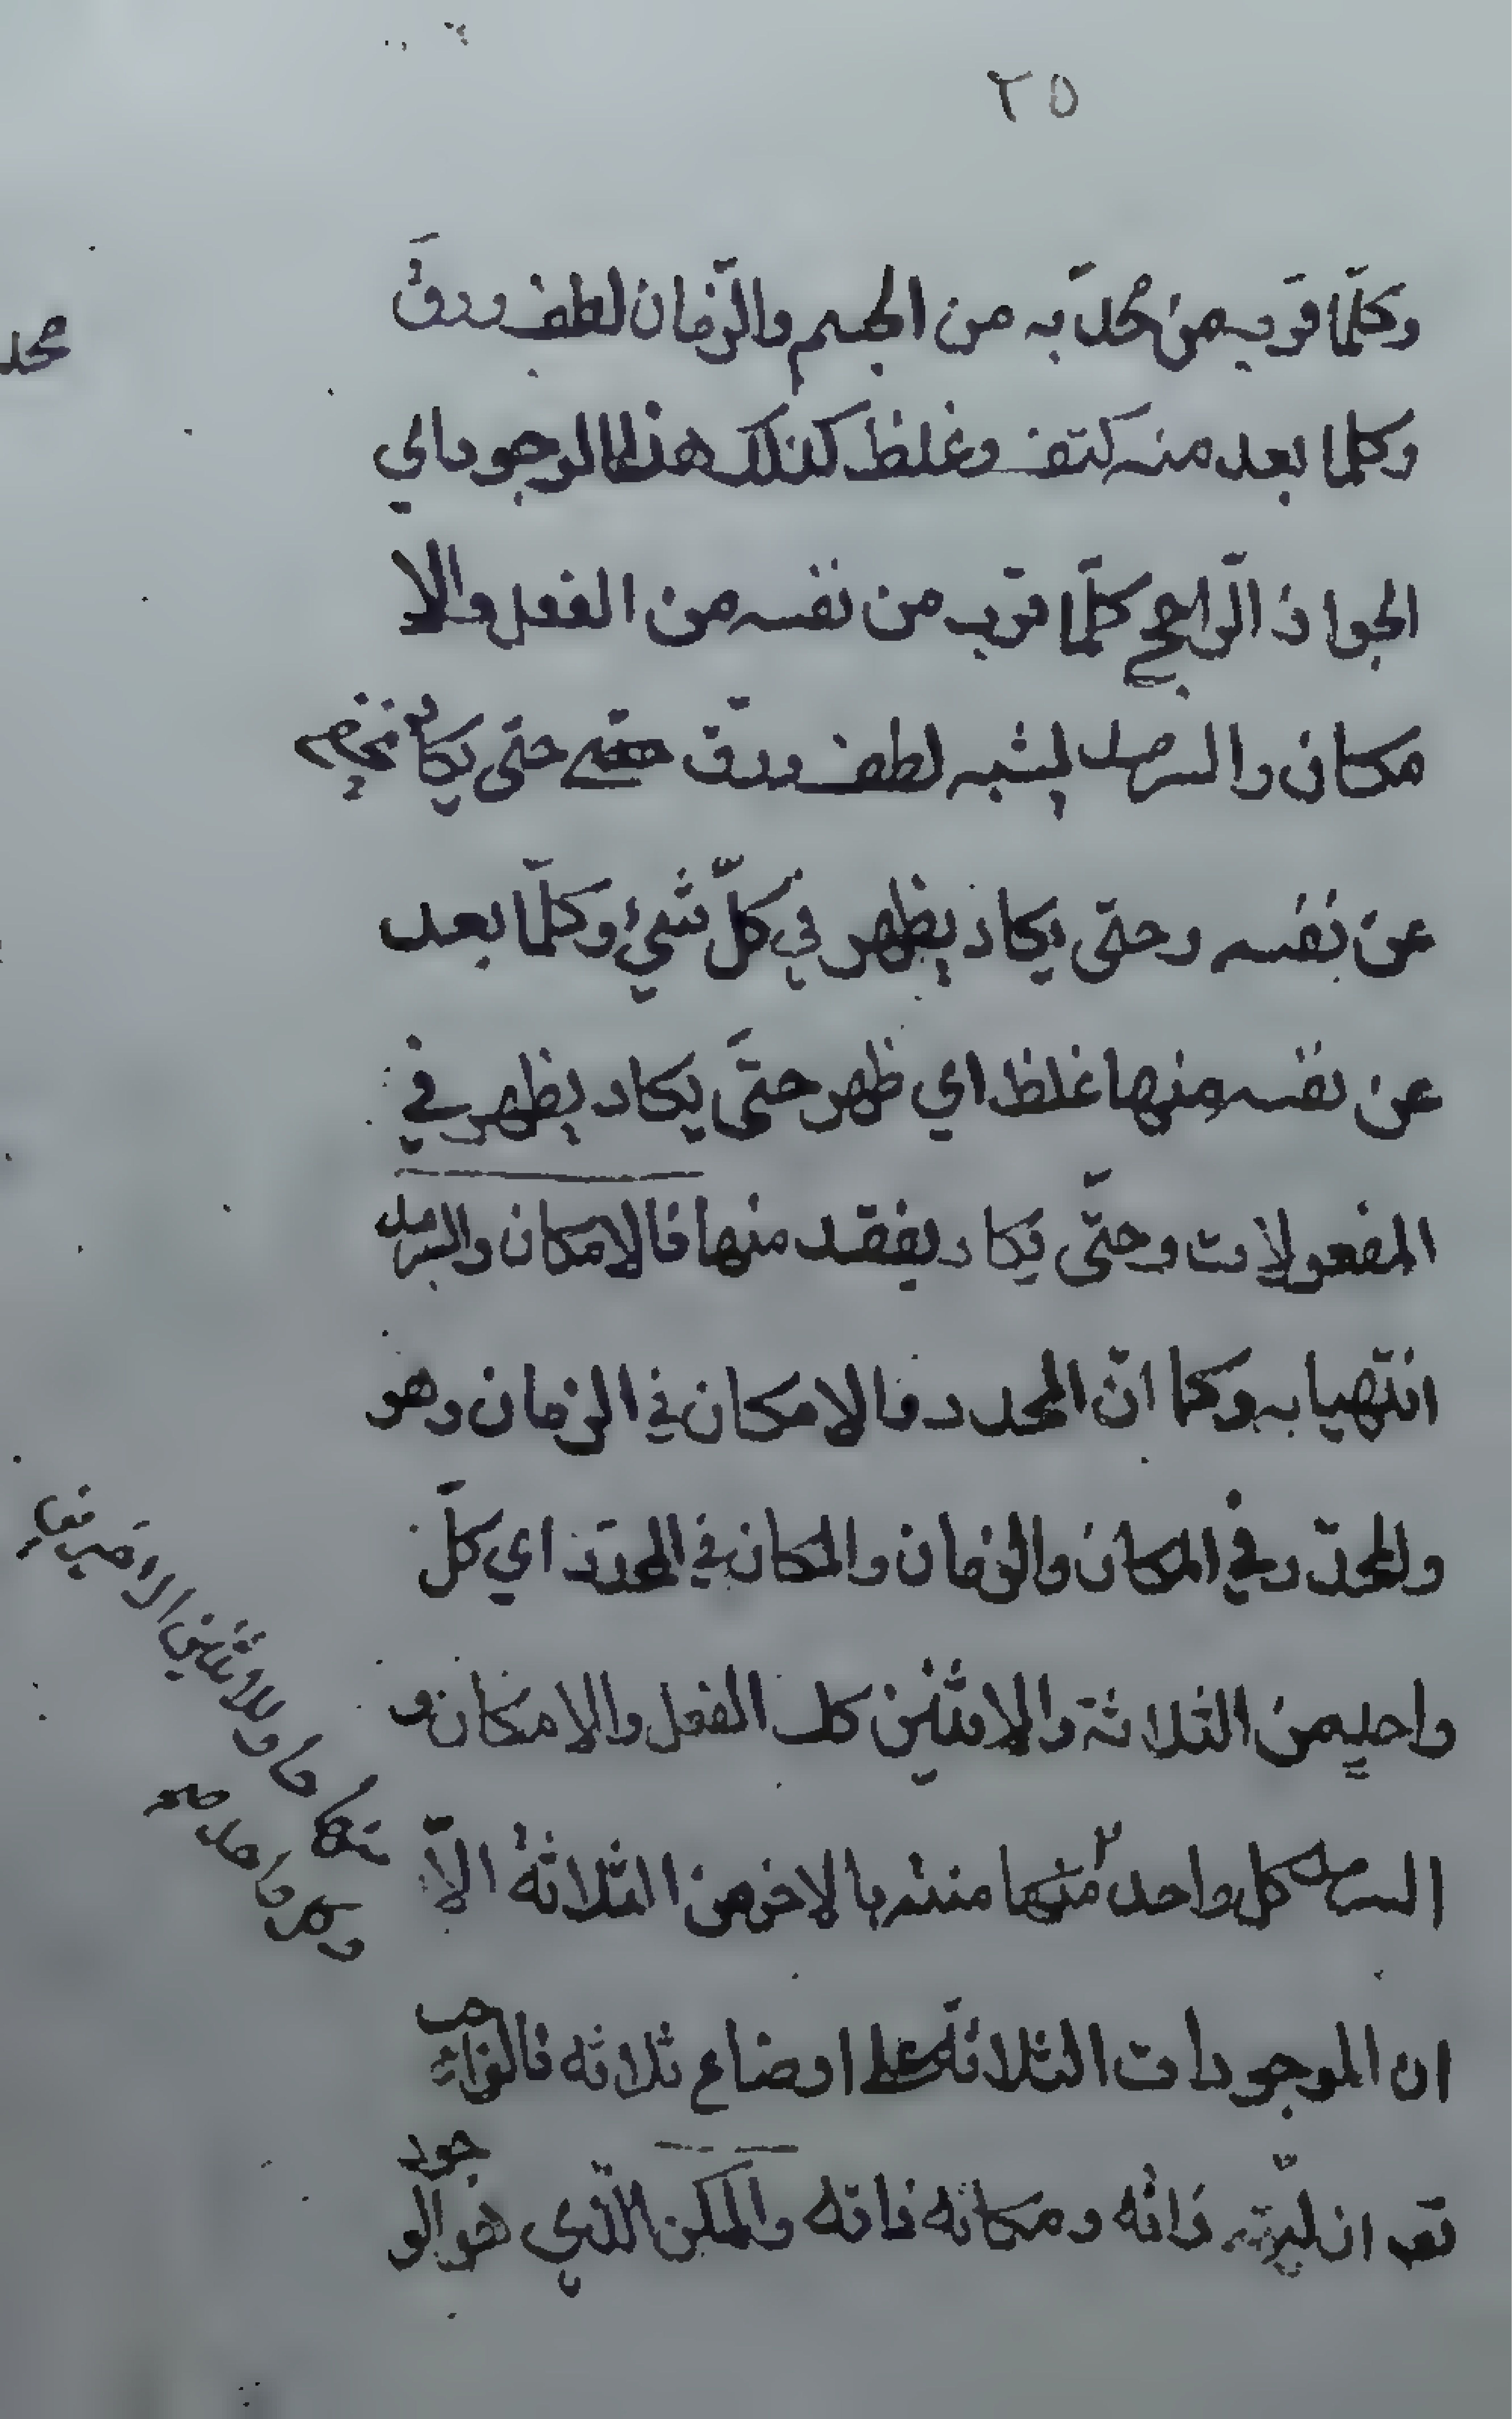 ٢٥
وكلّما قرب من محدّبه من الجسم والزّمان لطف ورقّ
وكلما بعد منه كثف وغلظ كذلك هذا الوجود اي
الجواز الرّاجح كلّما قرب من نفسه من الفعل والا
مكان والسرمد لنسبه لطف ورقّ حتى يكاد يخفى
عن نفسه وحتى يكاد يظهر في كلّ شيء وكلّما بعد
عن نفسه منها غلظ اي ظهر حتّى يكاد يظهر في
المفعولات وحتّى يكاد يفقد منها فالامكان والسرمد
انتهيا به وكما انّ المحدد والامكان في الزمان وهو
والمحدّد في المكان والزمان والمكان في المحدد اي كلّ
واحد من الثلاثة والاثنين كك الفعل والامكان و
السرمد كل واحد منها منته بالاخر من الثلاثة الاّ
ان الموجودات الثلاثة على اوضاع ثلاثه فالواجب
تعـ ان ذاته ومكانه ذاته والممكن الذي هو الو
جود
محد
منها وللاثنين الامرين
وكل واحد صح